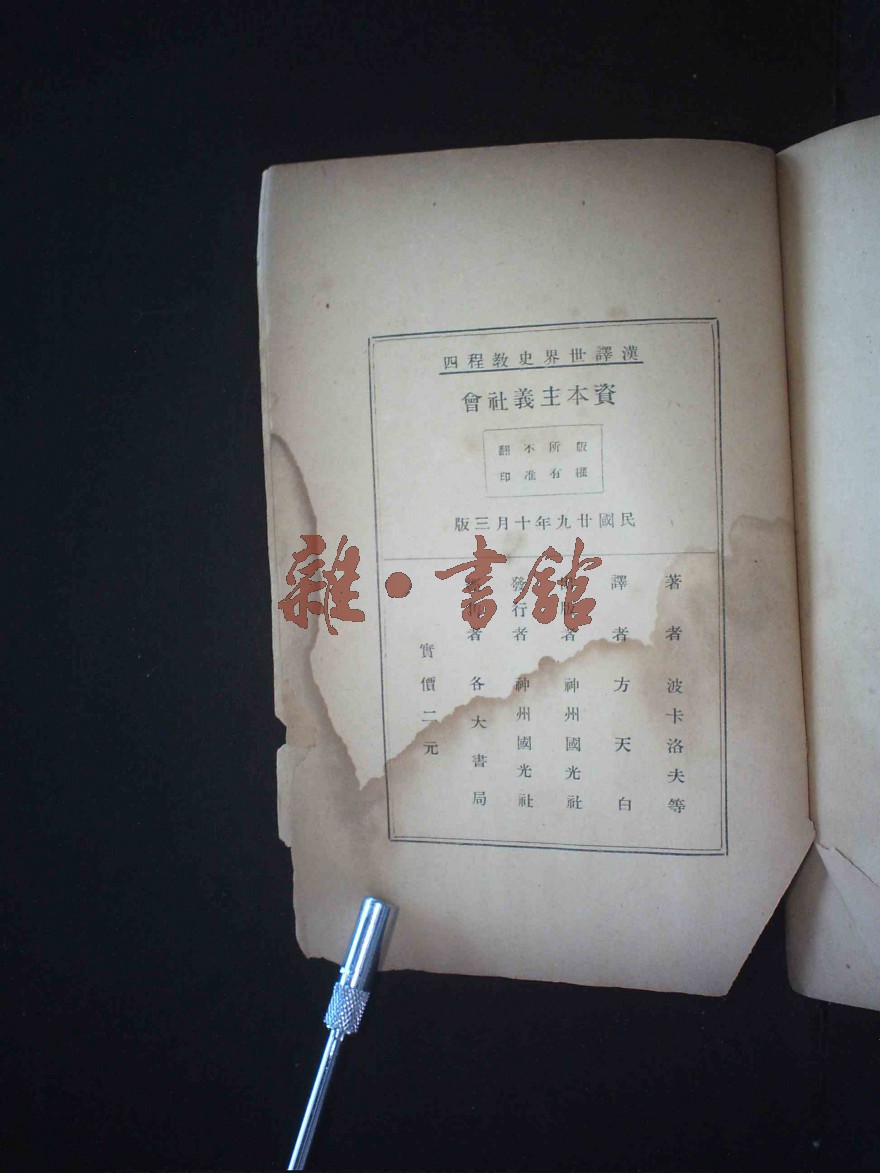 漢譯世界史教程四
資本主義社會
版權所有
不准翻印
民國廿九年十月三版
著者 波卡洛夫等
譯者 方天白
出版者 神州國光社
發行者 神州國光社
者 各大書局
實價二元
雜·書館